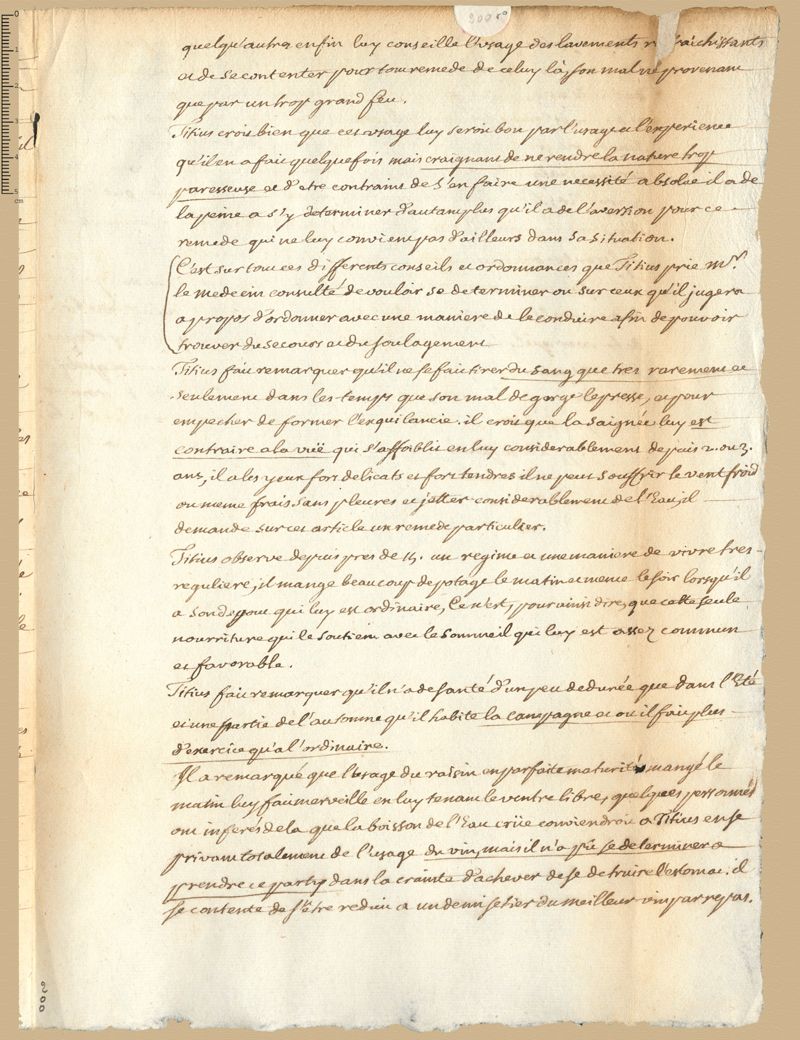 quelqu'autre enfin luy conseille l'usage des lavements rafraichissants
et de se contenter pour tout remede de celuy là, son mal ne provenant
que par un trop grand feu.
Titius croit bien que cet usage luy seroit bon par l'usage et l'experience
qu'il en a fait quelquefois mais craignant de ne rendre la nature trop
paresseuse et d'etre contraint de s'en faire une necessité absolue il a de
la peine a s'y determiner d'autant plus qu'il a de l'aversion pour ce
remede qui ne luy convient pas d'ailleurs dans sa situation.
C'est sur tout ces differents conseils et ordonnances que Titius prie Mr.
le medecin consulté de vouloir se determiner ou sur ceux qu'il jugera
a propos d'ordonner avec une maniere de le conduire afin de pouvoir
trouver du secours et du soulagement
Titius fait remarquer qu'il ne se fait tirer du sang que tres rarement et
seulement dans les temps que son mal de gorge le presse, et pour
empecher de former l'esquilancie. il croit que la saignée luy est
contraire a la vuë qui s'affoiblit en luy considerablement depuis 2. ou 3.
ans, il a les yeux fort delicats et fort tendres il ne peut souffrir le vent froid
ou meme frais sans pleures et jetter considerablement de l'Eau, il
demande sur cet article un remede particulier.
Titius observe depuis pres de 15. un regime et une maniere de vivre tres
reguliere, il mange beaucoup de potage le matin et meme le soir lorsqu'il
a son qui luy est ordinaire, Ce n'est, pour ainsi dire, que cette seule
nourriture qui le soutient avec le sommeil qui luy est assez commun
et favorable.
Titius fait remarquer qu'il n'a de santé d'un peu de durée que dans l'Eté
et une partie de l'automne qu'il habite la campagne et ou il fait plus
d'exercice qu'a l'ordinaire.
Il a remarqué que l'usage du raisin en parfaite maturité mangé le
matin luy fait merveille en luy tenant le ventre libre, quelques personnes
ont inferés de la que la boisson de l'Eau crüe conviendroit a Titius en se
privant totalement de l'usage du vin, mais il n'a pu se determiner a
prendre ce party dans la crainte d'achever de se detruire l'estomac. il
se contente de s'être reduit a un demi setier du meilleur vin par repas.